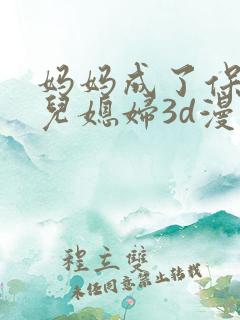 妈妈成了保
兒媳婦3d漫
程立雙
未任同意禁止转载